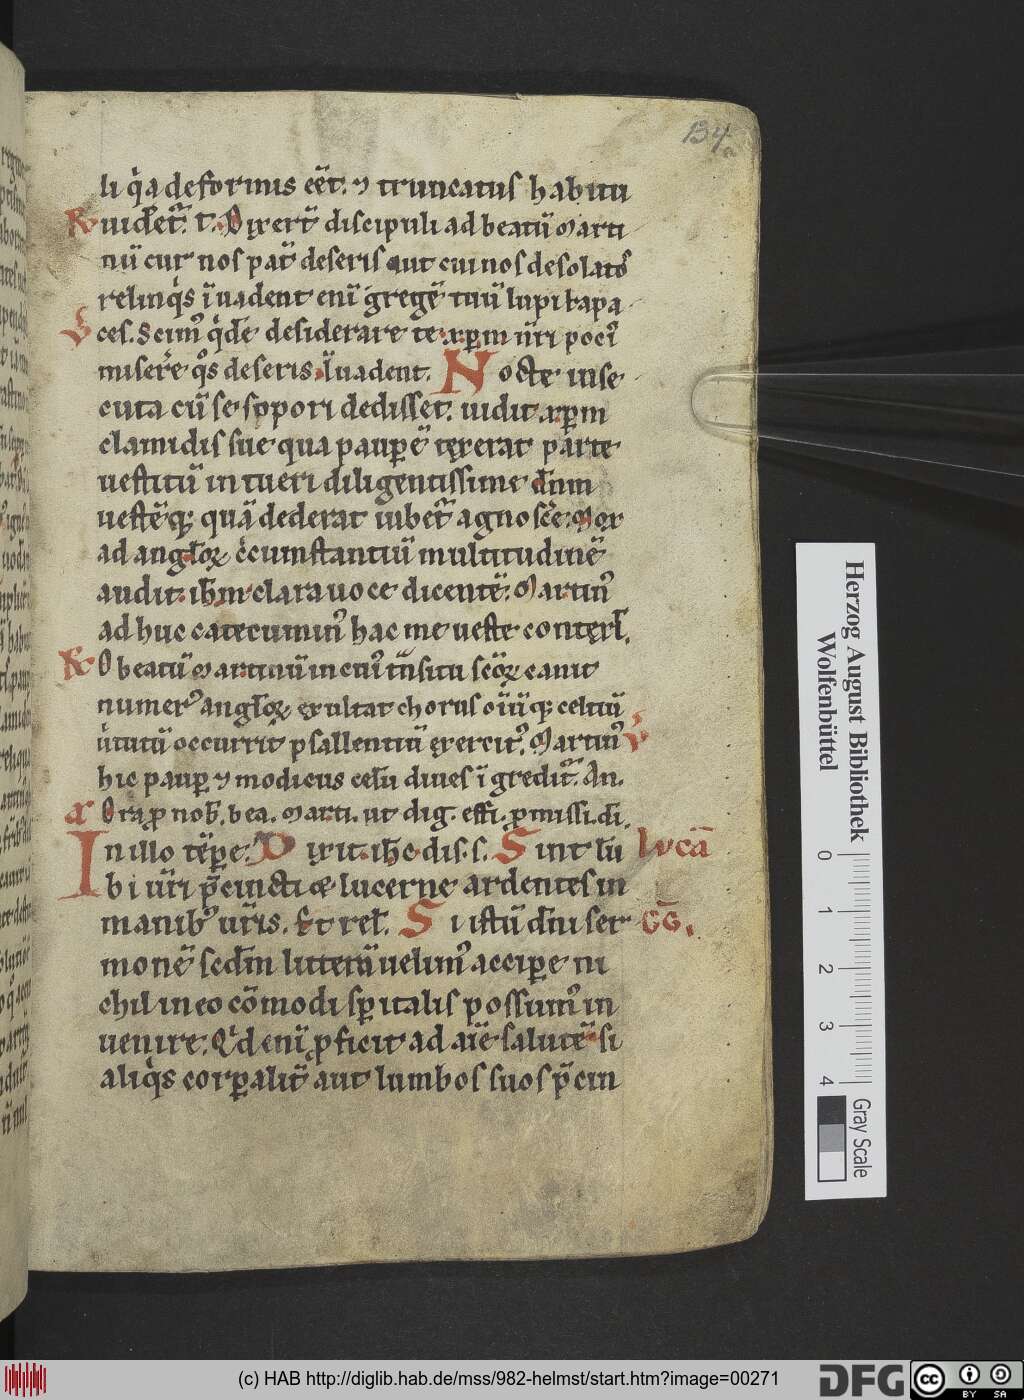 134a
li q̇a deformis eēt. ⁊ truncatus habitu
R̸ uidet᷑. t. Dixer̄t discipuli ad beatū Marti
nū cur nos pat̄ deseris aut cui nos desolatos
relinq̇s īuadent enī gregē tuū lupi rapa
V̸ ces. Scimꝰ q̇dē desiderare te. xp̄m n̄ri poci
miserēre qͦs deseris. Iuadent. Nocte inse
cuta cū se sopori dedisset. uidit xp̄m
clamidis sue qua paupē texerat parte
uestitū intueri diligentissime dn̄m
uestēq; quā dederat iubet᷑ agnoscē. Mox
ad angl̄oꝝ c̄cumstantiū multitudinē
audit ih̄m clara uoce dicentē. Martinꝰ
adhuc catecuminꝰ hac me ueste contex̄.
R̸ O beatū Martinū in cuiꝰ t̄nsitu scōꝝ canit
numerꝰ angl̄oꝝ exultat chorus oīūq; celtiū
u̇tutū occurrit psallentiū exercitꝰ. Martinꝰ V̸
hic paup̄ ⁊ modicus celū diues īgredit᷑. An.
Ora ꝓ nob̄. bea. Marti. ut dig. effi. ꝓmissi. di.
In illo tēpe. Dixit ih̄c dis. s. Sint lū lucā
bi ur̄i p̄cincti & lucerne ardentes in
manibꝰ ur̄is. Et rel̄. Si istū dn̄i ser GG.
monē scdm litterā uelimꝰ accipere ni
chil in eo cōmodi spiritalis possumꝰ in
uenire. Qͥd enī ꝓficit ad aīe salutē si
aliq̇s corꝑalit̄ aut lumbos suos p̄cin
Herzog August Bibliothek
Wolfenbüttel
0 1 2 3 4
Gray Scale
(c) HAB http://diglib.hab.de/mss/982-helmst/start.htm?image=00271
DFG
cc BY SA